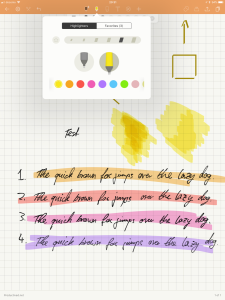 Highlighters Favorites (4)
test
1. The quick brown fox jumps over the lazy dog.
2. The quick brown fox jumps over the lazy dog.
3. The quick brown fox jumps over the lazy dog.
4. The quick brown fox jumps over the lazy dog